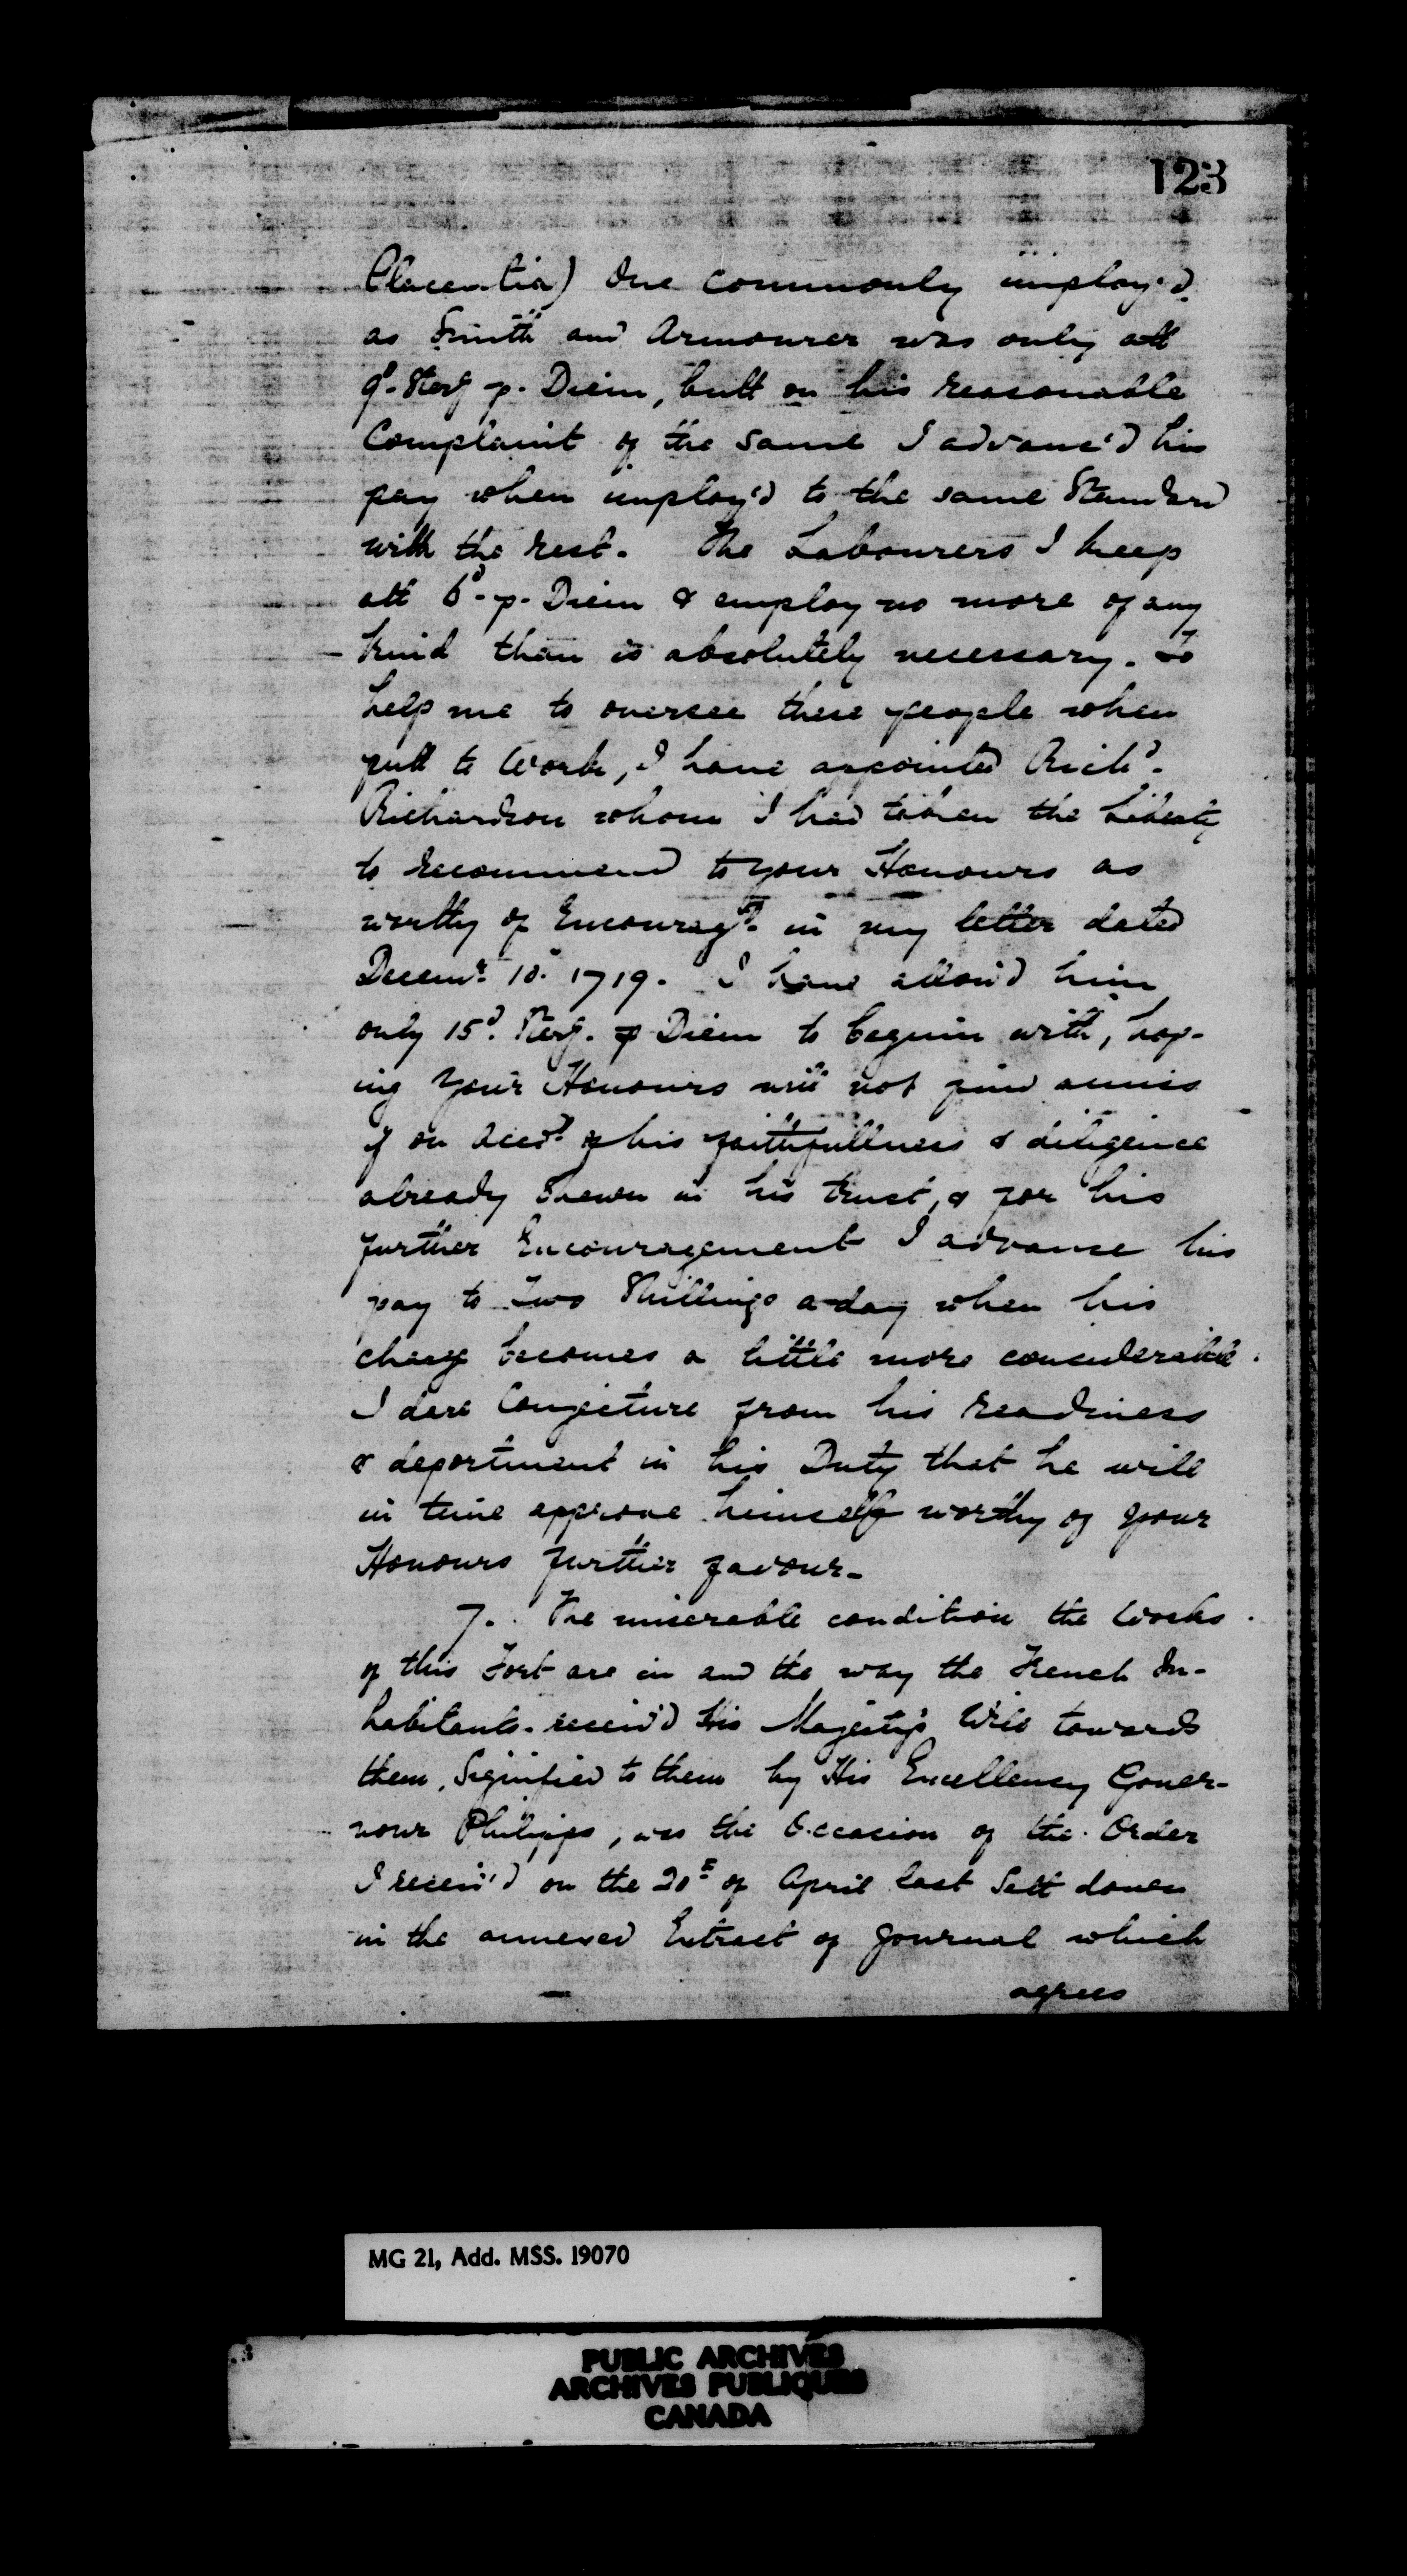 123
Placentia) One commonly imploy'd
as Smith and Armourer was only att
9d. Sterg p. Diem, butt on his reasonable
Complaint of the same I advanc'd his
pay when imploy'd to the same Standard
with the rest. The Labourers I keep
att 6d. p. Diem & employ no more of any
kind than is absolutely necessary. To
help me to oversee these people when
putt to Work, I have appointed Richd.
Richardson whom I had taken the Liberty
to recommend to your Honours as
worthy of Encouragt. in my letter dated
Decemr. 10. 1719. I have allow'd him
only 15d. Sterg. p Diem to beginn with, hop-
ing Your Honours will not find amiss
if on Acct. of his faithfullness & diligence
already shewn in his trust, & for his
further Encouragement I advance his
pay to Two Shillings a day when his
charge becomes a little more considerable.
I dare Conjecture from his readiness
& deportment in his Duty that he will
in time approve himself worthy of your
Honours further favour.
7. The miserable condition the Works
of this Fort are in and the way the French In-
habitants receiv'd His Majesty's Will towards
them, Signified to them by His Excellency Gover-
nour Philipps, was the Occasion of the Order
I receiv'd on the 20th of April last Sett down
in the annexed Extract of Journal which
agrees
MG 21, Add. MSS. 19070
PUBLIC ARCHIVES
ARCHIVES PUBLIQUES
CANADA